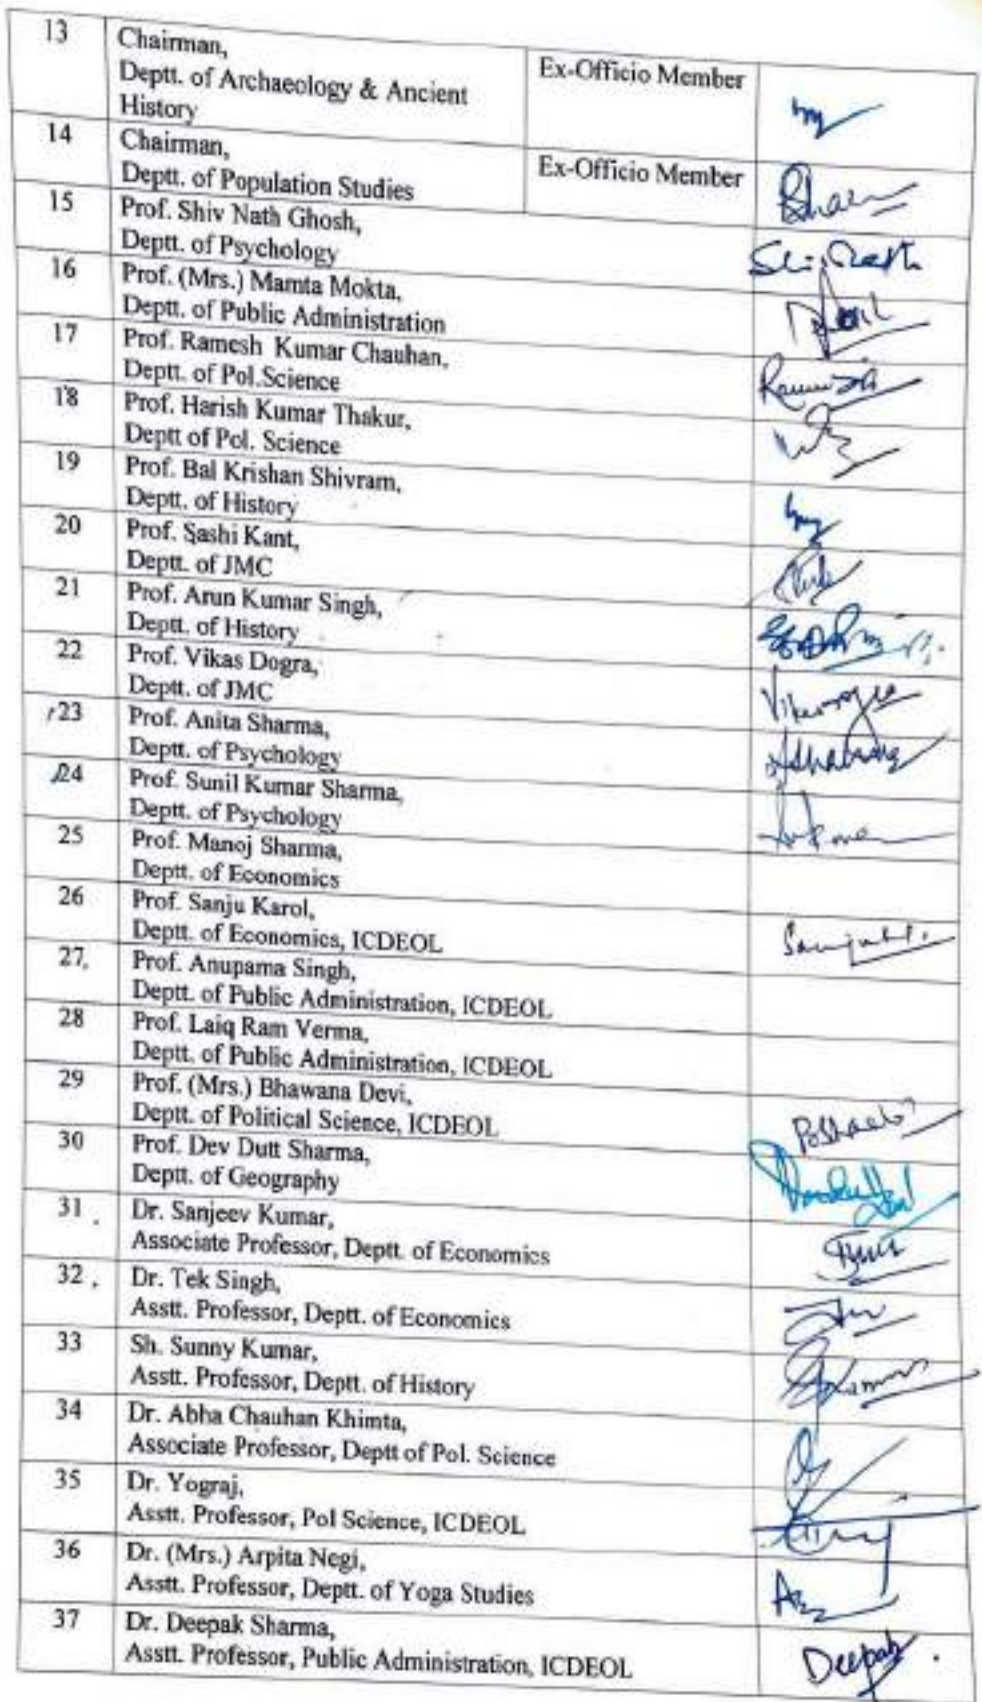 13
Chairman,
Deptt. of Archaeology & Ancient
History
Ex-Officio Member
14
Chairman,
Deptt. of Population Studies
Ex-Officio Member
15
Prof. Shiv Nath Ghosh,
Deptt. of Psychology
16
Prof. (Mrs.) Mamta Mokta,
Deptt. of Public Administration
17
Prof. Ramesh Kumar Chauhan,
Deptt. of Pol.Science
18
Prof. Harish Kumar Thakur,
Deptt of Pol. Science
19
Prof. Bal Krishan Shivram,
Deptt. of History
20
Prof. Sashi Kant,
Deptt. of JMC
21
Prof. Arun Kumar Singh,
Deptt. of History
22
Prof. Vikas Dogra,
Deptt. of JMC
23
Prof. Anita Sharma,
Deptt. of Psychology
24
Prof. Sunil Kumar Sharma,
Deptt. of Psychology
25
Prof. Manoj Sharma,
Deptt. of Economics
26
Prof. Sanju Karol,
Deptt. of Economics, ICDEOL
27.
Prof. Anupama Singh,
Deptt. of Public Administration, ICDEOL
28
Prof. Laiq Ram Verma,
Deptt. of Public Administration, ICDEOL
29
Prof. (Mrs.) Bhawana Devi,
Deptt. of Political Science, ICDEOL
30
Prof. Dev Dutt Sharma,
Deptt. of Geography
31.
Dr. Sanjeev Kumar,
Associate Professor, Deptt. of Economics
32.
Dr. Tek Singh,
Asstt. Professor, Deptt. of Economics
33
Sh. Sunny Kumar,
Asstt. Professor, Deptt. of History
34
Dr. Abha Chauhan Khimta,
Associate Professor, Deptt of Pol. Science
35
Dr. Yograj,
Asstt. Professor, Pol Science, ICDEOL
36
Dr. (Mrs.) Arpita Negi,
Asstt. Professor, Deptt. of Yoga Studies
37
Dr. Deepak Sharma,
Asstt. Professor, Public Administration, ICDEOL
Deepak